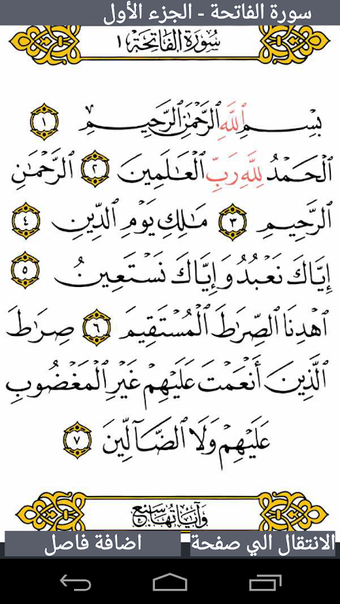 سورة الفاتحة - الجزء الأول
سُورَةُ الفَاتِحَةِ ١
بِسْمِ اللَّهِ الرَّحْمَٰنِ الرَّحِيمِ ١
الْحَمْدُ لِلَّهِ رَبِّ الْعَالَمِينَ ٢ الرَّحْمَٰنِ
الرَّحِيمِ ٣ مَالِكِ يَوْمِ الدِّينِ ٤
إِيَّاكَ نَعْبُدُ وَإِيَّاكَ نَسْتَعِينُ ٥
اهْدِنَا الصِّرَاطَ الْمُسْتَقِيمَ ٦ صِرَاطَ
الَّذِينَ أَنْعَمْتَ عَلَيْهِمْ غَيْرِ الْمَغْضُوبِ
عَلَيْهِمْ وَلَا الضَّالِّينَ ٧
وَآيَاتُهَا سَبْعٌ
الانتقال الي صفحة
اضافة فاصل